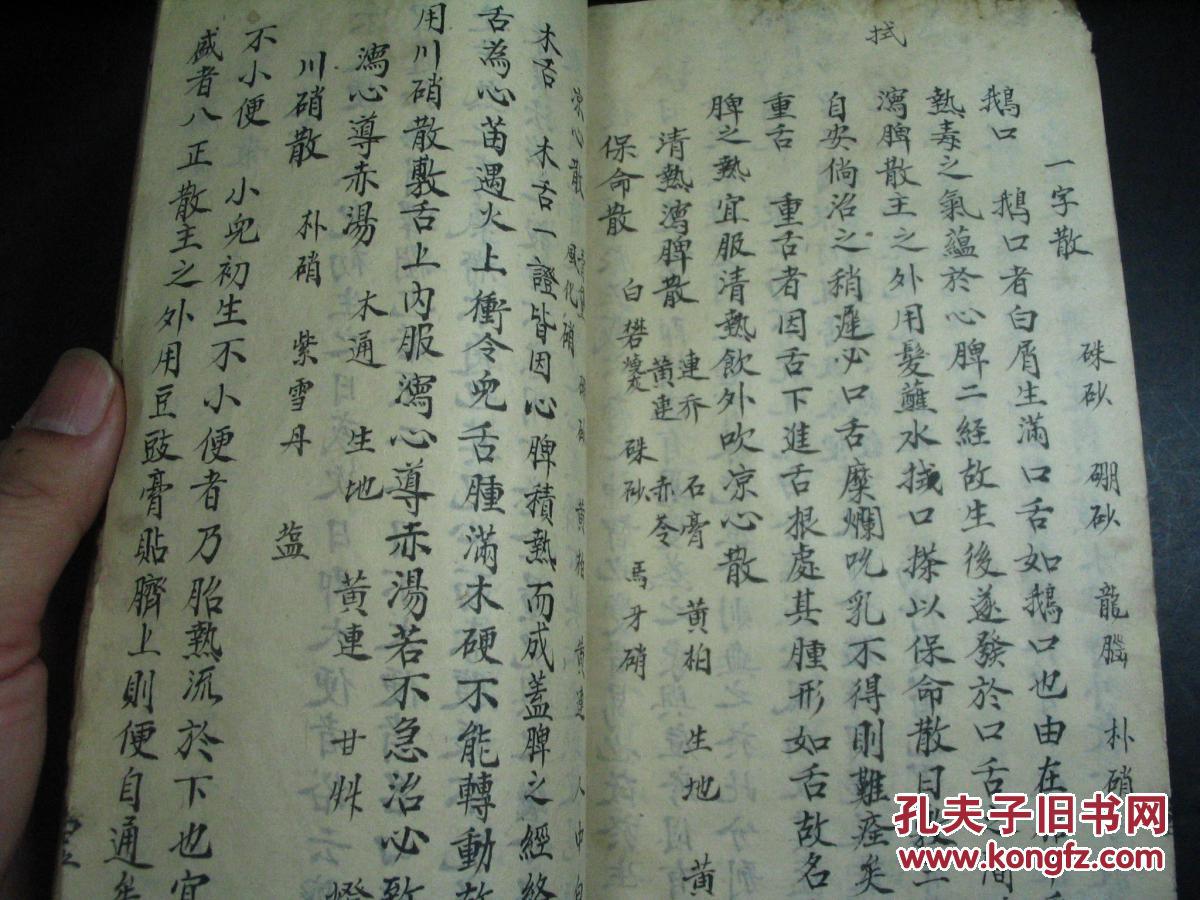 拭
一字散 硃砂 硼砂 龍腦 朴硝
鵝口 鵝口者白屑生滿口舌如鵝口也由在
熱毒之氣蘊於心脾二經故生後遂發於口舌之間
瀉脾散主之外用髮蘸水拭口搽以保命散日敷二
自安倘治之稍遲必口舌糜爛吮乳不得則難痊矣
重舌 重舌者因舌下進舌根處其腫形如舌故名
脾之熱宜服清熱飲外吹凉心散
清熱瀉脾散 連乔 黃連 赤苓 石膏 黃柏 生地 黃
保命散 白礬 硃砂 馬牙硝
凉心散 風化硝 黃柏 黃連 人中白
木舌 木舌一證皆因心脾積熱而成蓋脾之經絡
舌為心苗遇火上衝令兒舌腫滿木硬不能轉動故
用川硝散敷舌上内服瀉心導赤湯若不急治必致
瀉心導赤湯 木通 生地 黃連 甘艸 燈
川硝散 朴硝 紫雪丹 塩
不小便 小兒初生不小便者乃胎熱流於下也宜
盛者八正散主之外用豆豉膏貼臍上則便自通矣
孔夫子旧书网
www.kongfz.com